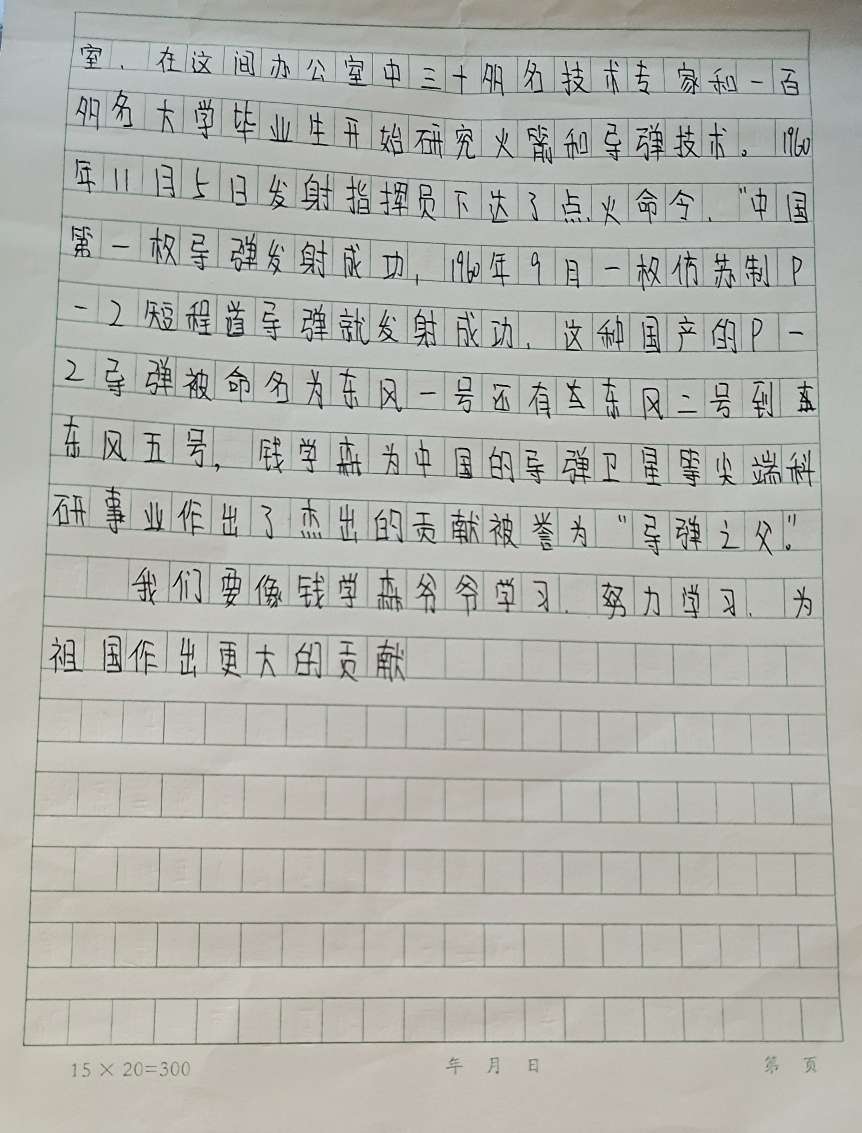 室、在这间办公室中三十多名技术专家和一百
多名大学毕业生开始研究火箭和导弹技术。1960
年11月5日发射指挥员下达了点火命令、"中国
第一枚导弹发射成功,1960年9月一枚仿苏制P
-2短程道导弹就发射成功、这种国产的P-
2导弹被命名为东风一号还有东风二号到
东风五号,钱学森为中国的导弹卫星等尖端科
研事业作出了杰出的贡献被誉为"导弹之父。"
我们要像钱学森爷爷学习、努力学习、为
祖国作出更大的贡献
15×20=300 年 月 日 第 页